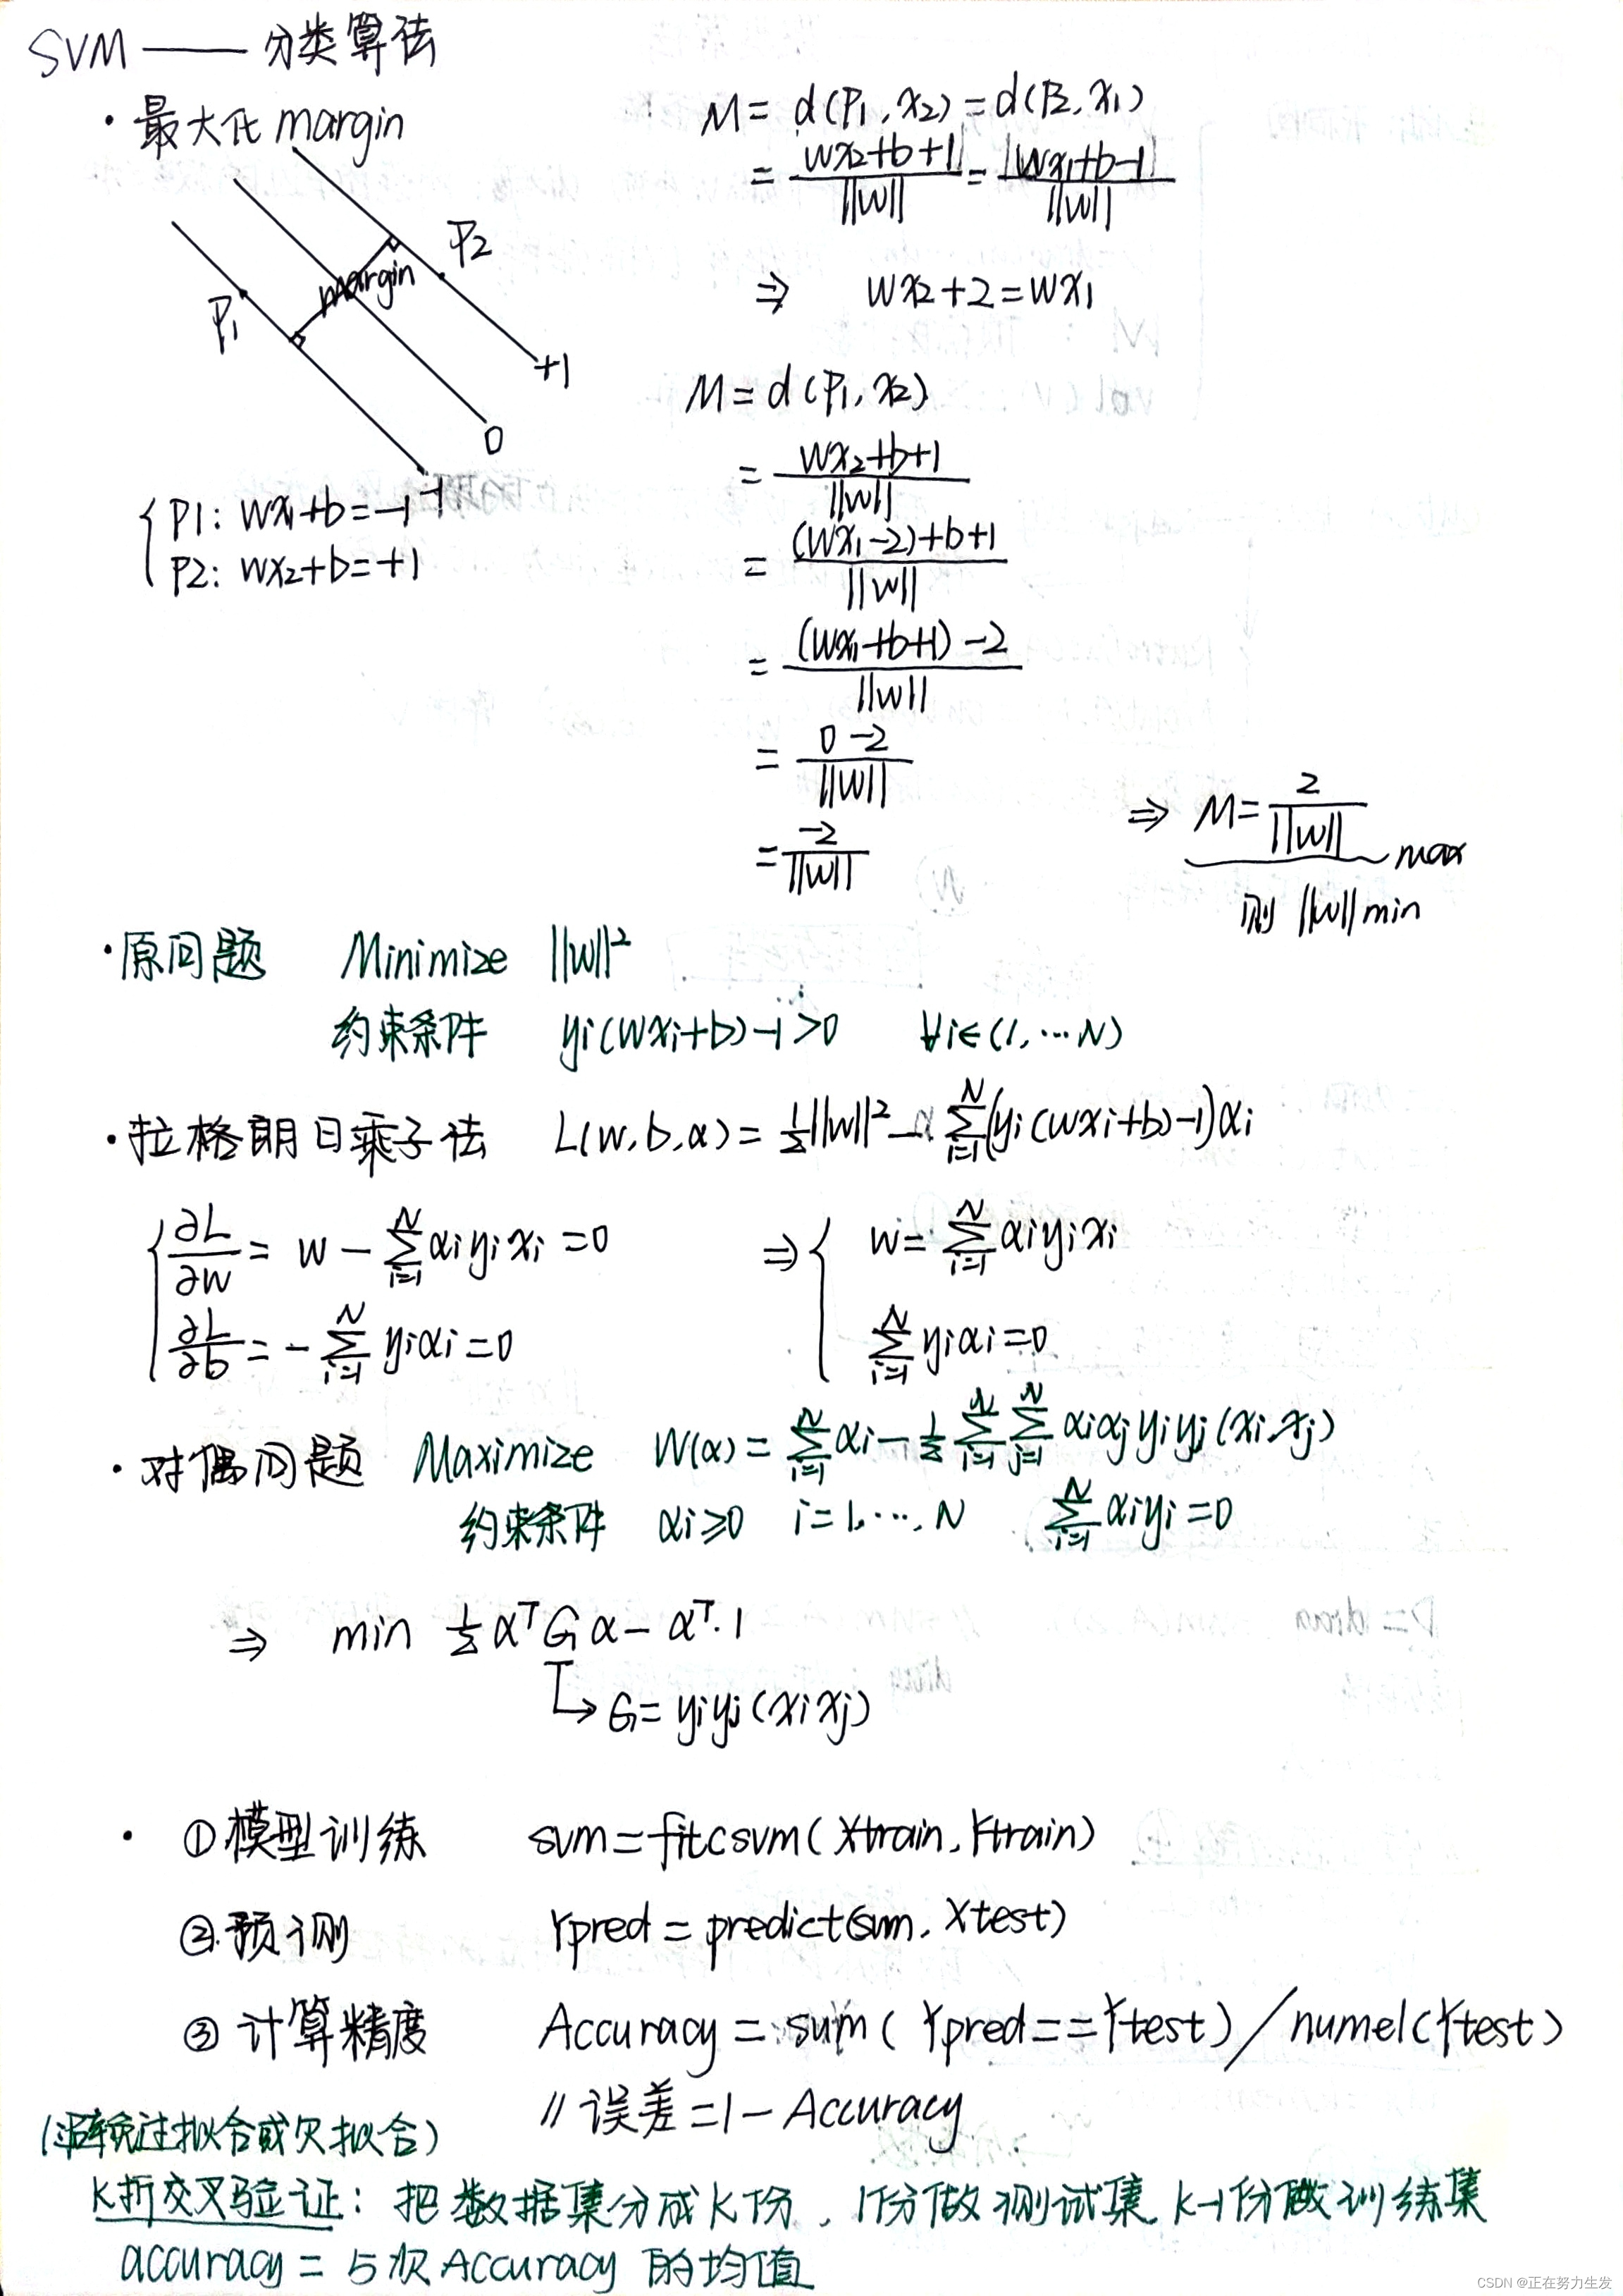 SVM —— 分类算法
· 最大化 margin
P1
P2
margin
+1
0
-1
{ P1: wx1+b=-1
P2: wx2+b=+1
M = d(P1, x2) = d(P2, x1)
= |wx2+b+1| / ||w|| = |wx1+b-1| / ||w||
⇒ wx2+2=wx1
M = d(P1, x2)
= (wx2+b+1) / ||w||
= ((wx1-2)+b+1) / ||w||
= ((wx1+b+1)-2) / ||w||
= (0-2) / ||w||
= -2 / ||w||
⇒ M = 2 / ||w|| max
则 ||w|| min
· 原问题 Minimize ||w||²
约束条件 yi(wxi+b)-1>0 ∀i∈(1,…N)
· 拉格朗日乘子法 L(w,b,α) = ½||w||² - Σ_{i=1}^{N} (yi(wxi+b)-1)αi
{ ∂L/∂w = w - Σ_{i=1}^{N} αiyixi = 0 ⇒ { w = Σ_{i=1}^{N} αiyixi
∂L/∂b = - Σ_{i=1}^{N} yiαi = 0 Σ_{i=1}^{N} yiαi = 0
· 对偶问题 Maximize W(α) = Σ_{i=1}^{N} αi - ½ Σ_{i=1}^{N} Σ_{j=1}^{N} αiαjyiyj(xi.xj)
约束条件 αi≥0 i=1,…,N Σ_{i=1}^{N} αiyi=0
⇒ min ½ αᵀGα - αᵀ·1
↳ G = yiyj(xixj)
· ①模型训练 svm=fitcsvm(Xtrain,Ytrain)
②预测 Ypred = predict(svm, Xtest)
③计算精度 Accuracy = sum(Ypred==Ytest)/numel(Ytest)
// 误差=1-Accuracy
(避免过拟合或欠拟合)
K折交叉验证: 把数据集分成K份, 1份做测试集 K-1份做训练集
accuracy = 5次Accuracy的均值
CSDN @正在努力生发